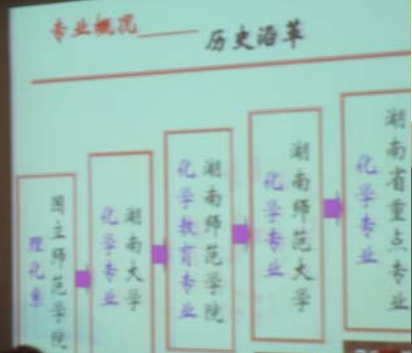 专业概况____历史沿革
国立师范学院
理化系
湖南大学
化学专业
湖南师范学院
化学教育专业
湖南师范大学
化学专业
湖南省重点专业
化学专业